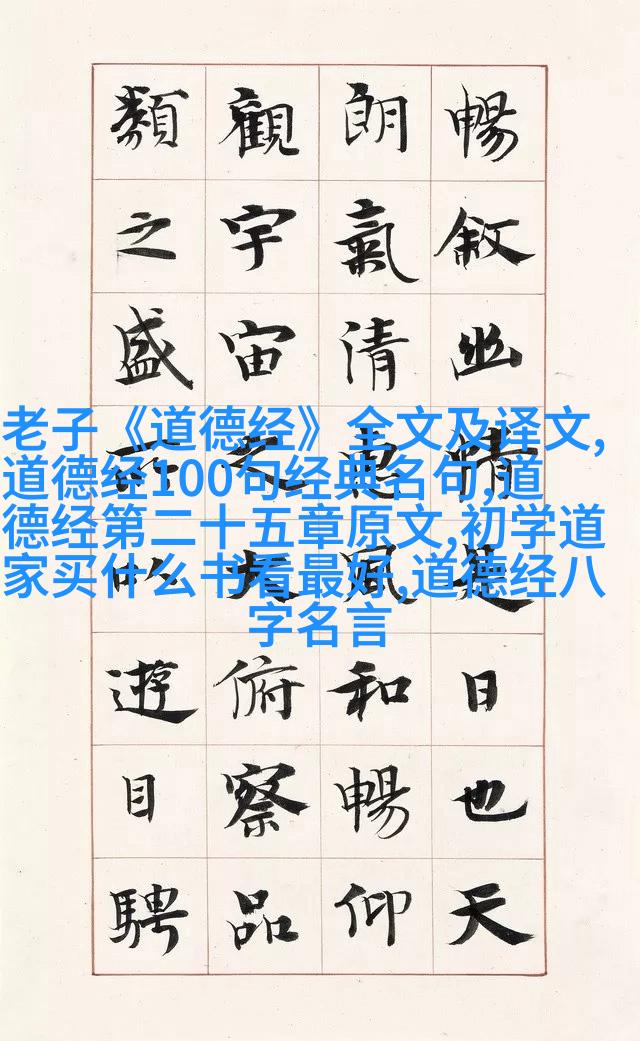 暢敘幽情是日也天
朗氣清惠風和暢仰
觀宇宙之大俯察品
類之盛所以遊目騁
老子《道德经》全文及译文,
道德经100句经典名句,道
德经第二十五章原文,初学道
家买什么书看最好,道德经八
字名言